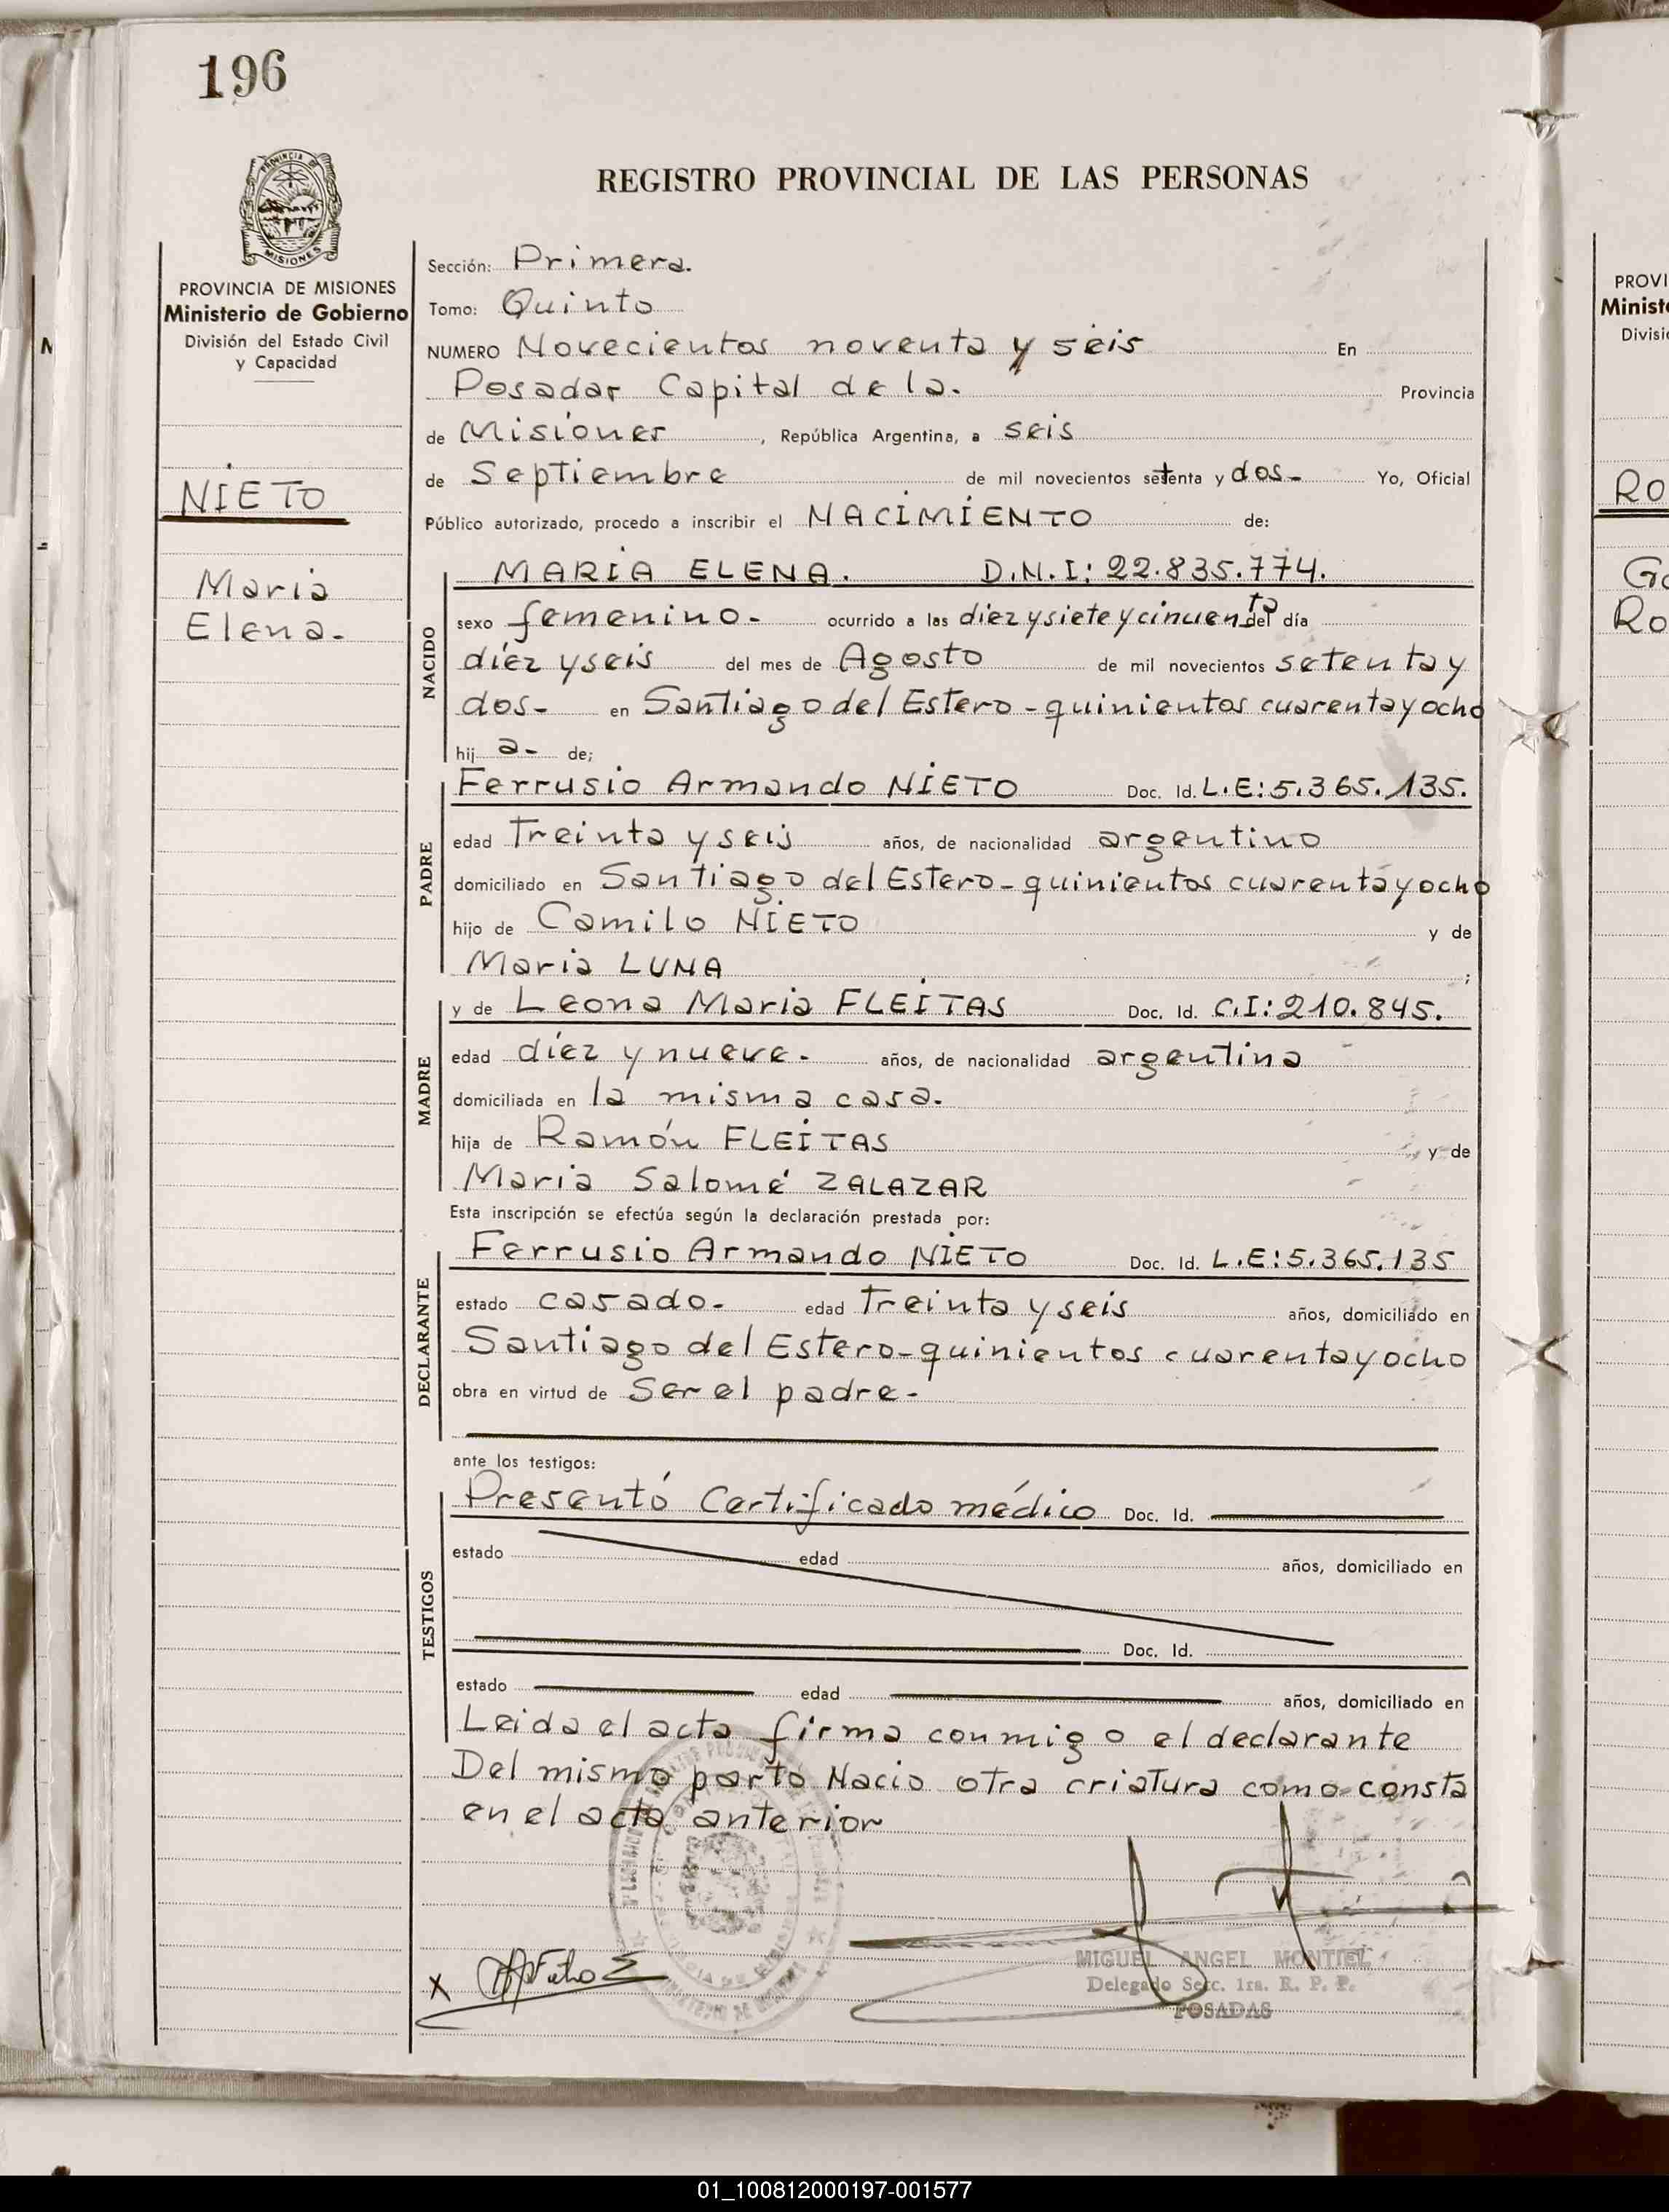 196
REGISTRO PROVINCIAL DE LAS PERSONAS
PROVINCIA DE MISIONES
Ministerio de Gobierno
División del Estado Civil
y Capacidad
NIETO
Maria
Elena.-
Sección: Primera.
Tomo: Quinto
NUMERO Novecientos noventa y seis En
Posadas Capital de la. Provincia
de Misiones, República Argentina, a seis
de Septiembre de mil novecientos setenta y dos.- Yo, Oficial
Público autorizado, procedo a inscribir el NACIMIENTO de:
NACIDO
MARIA ELENA. D.N.I: 22.835.774.
sexo femenino.- ocurrido a las diez y siete y cincuenta del día
diez y seis del mes de Agosto de mil novecientos setenta y
dos- en Santiago del Estero - quinientos cuarenta y ocho
hij a- de;
PADRE
Ferrusio Armando NIETO Doc. Id. L.E: 5.365.135.
edad Treinta y seis años, de nacionalidad argentino
domiciliado en Santiago del Estero - quinientos cuarenta y ocho
hijo de Camilo NIETO y de
Maria LUNA ;
MADRE
y de Leona Maria FLEITAS Doc. Id. C.I: 210.845.
edad diez y nueve.- años, de nacionalidad argentina
domiciliada en la misma casa.
hija de Ramón FLEITAS y de
Maria Salomé ZALAZAR
Esta inscripción se efectúa según la declaración prestada por:
DECLARANTE
Ferrusio Armando NIETO Doc. Id. L.E: 5.365.135
estado casado.- edad Treinta y seis años, domiciliado en
Santiago del Estero - quinientos cuarenta y ocho
obra en virtud de Ser el padre.-
ante los testigos:
TESTIGOS
Presentó Certificado médico Doc. Id.
estado edad años, domiciliado en
Doc. Id.
estado edad años, domiciliado en
Leida el acta firma conmigo el declarante
Del mismo parto Nacio otra criatura como consta
en el acta anterior
MIGUEL ANGEL MONTIEL
Delegado Secc. 1ra. R. P. P.
POSADAS
PROVI
Minist
Divisi
Ro
Go
Ro
01_100812000197-001577